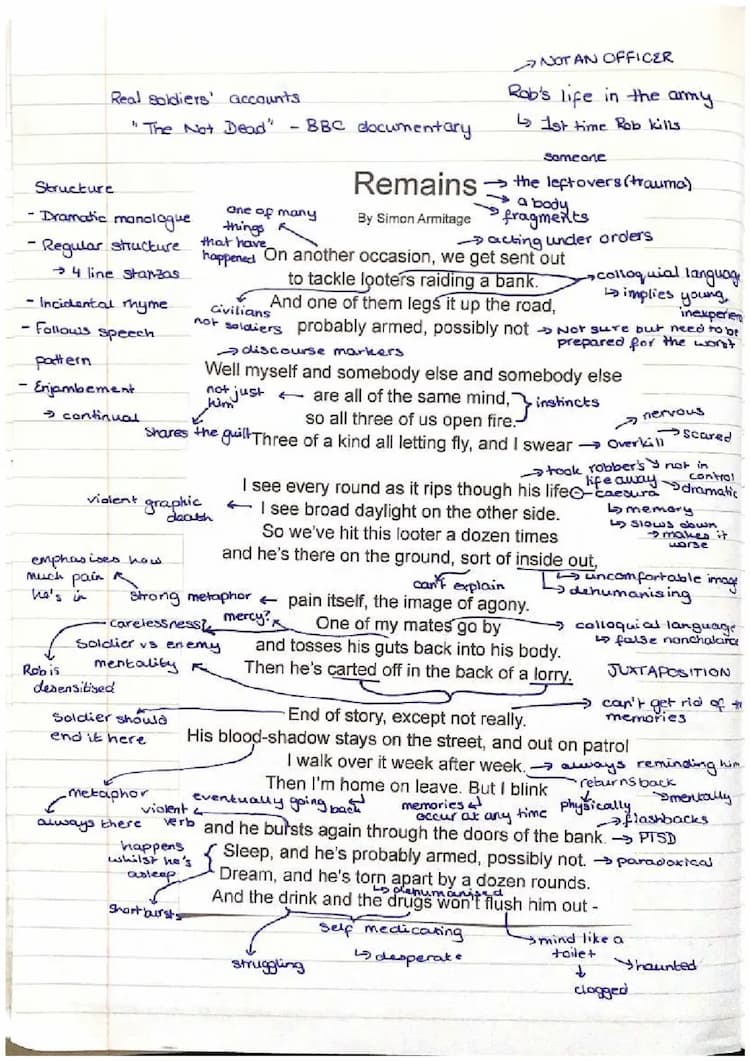 → NOT AN OFFICER
Real soldiers' accounts
Rob's life in the army
"The Not Dead" - BBC documentary
↳ 1st time Rob kills
someone
Structure
- Dramatic monologue
- Regular structure
→ 4 line stanzas
- Incidental rhyme
- Follows speech
pattern
- Enjambement
→ continual
Remains
→ the leftovers (trauma)
→ a body
→ fragments
By Simon Armitage
one of many
things
that have
happened
→ acting under orders
On another occasion, we get sent out
to tackle looters raiding a bank.
→ colloquial language
↳ implies young,
And one of them legs it up the road,
civilians
not soldiers
probably armed, possibly not
→ Not sure but need to be
prepared for the worst
→ discourse markers
Well myself and somebody else and somebody else
not just
him
are all of the same mind,
instincts
so all three of us open fire.
shares the guilt
Three of a kind all letting fly, and I swear
→ overkill
→ nervous
→ scared
→ not in
control
→ took robber's
life away
I see every round as it rips though his life -
caesura
→ dramatic
↳ memory
↳ slows down
→ makes it
worse
violent graphic
death
I see broad daylight on the other side.
So we've hit this looter a dozen times
and he's there on the ground, sort of inside out,
can't explain
→ uncomfortable image
→ dehumanising
emphasises how
much pain
he's in
strong metaphor
pain itself, the image of agony.
mercy?
One of my mates go by
→ colloquial language
carelessness?
and tosses his guts back into his body.
Soldier vs enemy
mentality
Then he's carted off in the back of a lorry.
JUXTAPOSITION
Rob is
desensitised
End of story, except not really.
→ can't get rid of
memories
Soldier should
end it here
His blood-shadow stays on the street, and out on patrol
I walk over it week after week.
→ always reminding him
Then I'm home on leave. But I blink
returns back
physically
→ mentally
→ metaphor
always there
eventually going back
memories
occur at any time
violent
verb
and he bursts again through the doors of the bank.
→ flashbacks
→ PTSD
happens
whilst he's
asleep
Sleep, and he's probably armed, possibly not.
→ paradoxical
Dream, and he's torn apart by a dozen rounds.
↳ dehumanised
short bursts
And the drink and the drugs won't flush him out -
self medicating
↳ desperate
struggling
→ mind like a
toilet
clogged
haunted